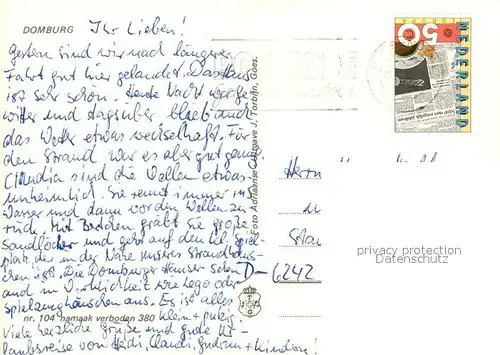 DOMBURG
Ihr Lieben!
Gestern sind wir nach längerer
Fahrt gut hier gelandet. Das Haus
ist sehr schön. Heute Nacht war Ge-
witter und tagsüber blieb auch
das Wetter etwas wechselhaft. Für
den Strand war es aber gut genug.
Claudia sind die Wellen etwas
unheimlich. Sie rennt immer ins
Wasser und dann vor den Wellen zu-
rück. Mit Begeisterung gräbt sie große
Sandlöcher und geht auf den kl. Spiel-
platz, der in der Nähe unseres Strandhäus-
chen ist. Die Domburger Häuser sehen
auch in Wirklichkeit wie Lego oder
Spielzeughäuschen aus. Es ist alles
klein + putzig!
Viele herzliche Grüße und gute
Urlaubsreise von Heidi, Claudi, + Kindern!
nr. 104 namaak verboden 380
Foto Adriaanse Uitgave J. Torbijn, Goes.
50
NEDERLAND
Herrn
D-6242
privacy protection
Datenschutz